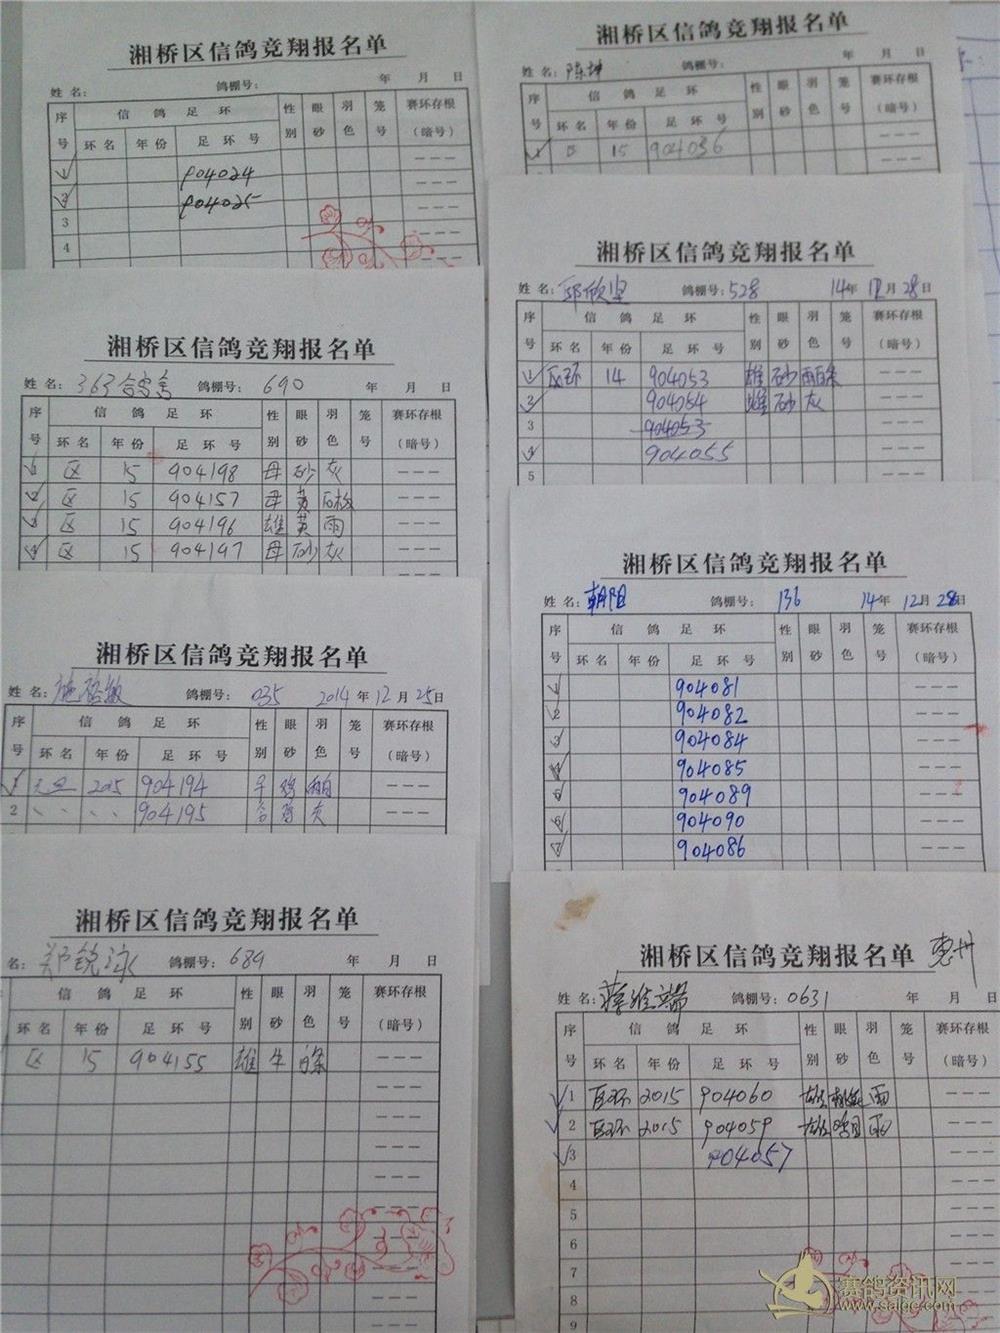 湘桥区信鸽竞翔报名单
姓 名： 鸽棚号： 年 月 日
序号 信 鸽 足 环 性别 眼砂 羽色 笼号 赛环存根（暗号）
环 名 年 份 足 环 号
1 904024 ---
2 904025 ---
3 ---
4 ---
湘桥区信鸽竞翔报名单
姓 名：363合字舍 鸽棚号：690 年 月 日
序号 信 鸽 足 环 性别 眼砂 羽色 笼号 赛环存根（暗号）
环 名 年 份 足 环 号
1 区 15 904198 母 砂 灰 ---
2 区 15 904157 母 黄 ---
3 区 15 904196 雄 黄 雨 ---
4 区 15 904197 母 砂 灰 ---
湘桥区信鸽竞翔报名单
姓 名： 鸽棚号：035 2014 年 12 月 25 日
序号 信 鸽 足 环 性别 眼砂 羽色 笼号 赛环存根（暗号）
环 名 年 份 足 环 号
1 2015 904194 ---
2 、、 、、 904195 ---
湘桥区信鸽竞翔报名单
名：郑锐泳 鸽棚号：689 年 月 日
信 鸽 足 环 性别 眼砂 羽色 笼号 赛环存根（暗号）
环 名 年 份 足 环 号
区 15 904155 雄 牛 ---
---
---
---
---
---
---
---
---
湘桥区信鸽竞翔报名单
姓 名：陈坤 鸽棚号： 年 月 日
序号 信 鸽 足 环 性别 眼砂 羽色 笼号 赛环存根（暗号）
环 名 年 份 足 环 号
1 区 15 904036 ---
湘桥区信鸽竞翔报名单
姓 名：邱欣坚 鸽棚号：528 14 年 12 月 28 日
序号 信 鸽 足 环 性别 眼砂 羽色 笼号 赛环存根（暗号）
环 名 年 份 足 环 号
1 区环 14 904053 雄 砂 雨白条 ---
2 904054 雄 砂 灰 ---
3 904053 ---
4 904055 ---
5 ---
湘桥区信鸽竞翔报名单
姓 名：朝阳 鸽棚号：136 14 年 12 月 28 日
序号 信 鸽 足 环 性别 眼砂 羽色 笼号 赛环存根（暗号）
环 名 年 份 足 环 号
1 904081 ---
2 904082 ---
3 904084 ---
4 904085 ---
5 904089 ---
6 904090 ---
7 904086 ---
湘桥区信鸽竞翔报名单 惠州
姓 名： 鸽棚号：0631 年 月 日
序号 信 鸽 足 环 性别 眼砂 羽色 笼号 赛环存根（暗号）
环 名 年 份 足 环 号
1 区环 2015 904060 雄 雨 ---
2 区环 2015 904059 雄 雨 ---
3 904057 ---
4 ---
5 ---
6 ---
7
8
9
赛鸽资讯网
www.saige.com